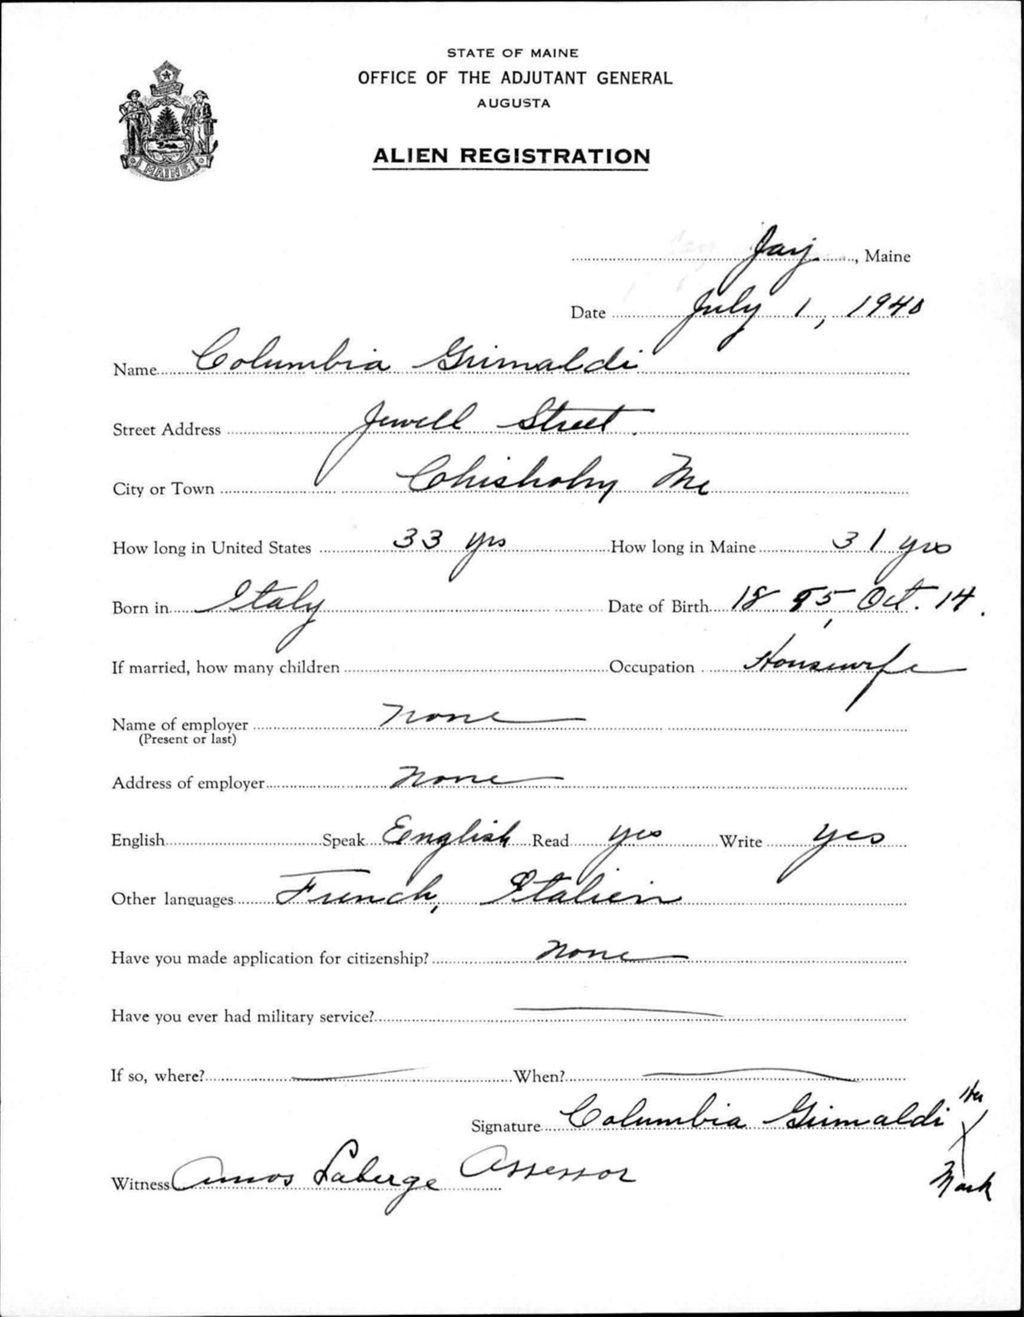 STATE OF MAINE
OFFICE OF THE ADJUTANT GENERAL
AUGUSTA
ALIEN REGISTRATION
MAINE
Jay, Maine
Date July 1, 1940
Name Columbia Grimaldi
Street Address Jewell Street.
City or Town Chisholm Me
How long in United States 33 yrs How long in Maine 31 yrs
Born in Italy Date of Birth 18 85, Oct. 14.
If married, how many children Occupation Housewife
Name of employer None
(Present or last)
Address of employer None
English Speak English Read yes Write yes
Other languages French, Italien
Have you made application for citizenship? None
Have you ever had military service?
If so, where? When?
Signature Columbia Grimaldi Her X Mark
Witness Amos Laberge Assessor